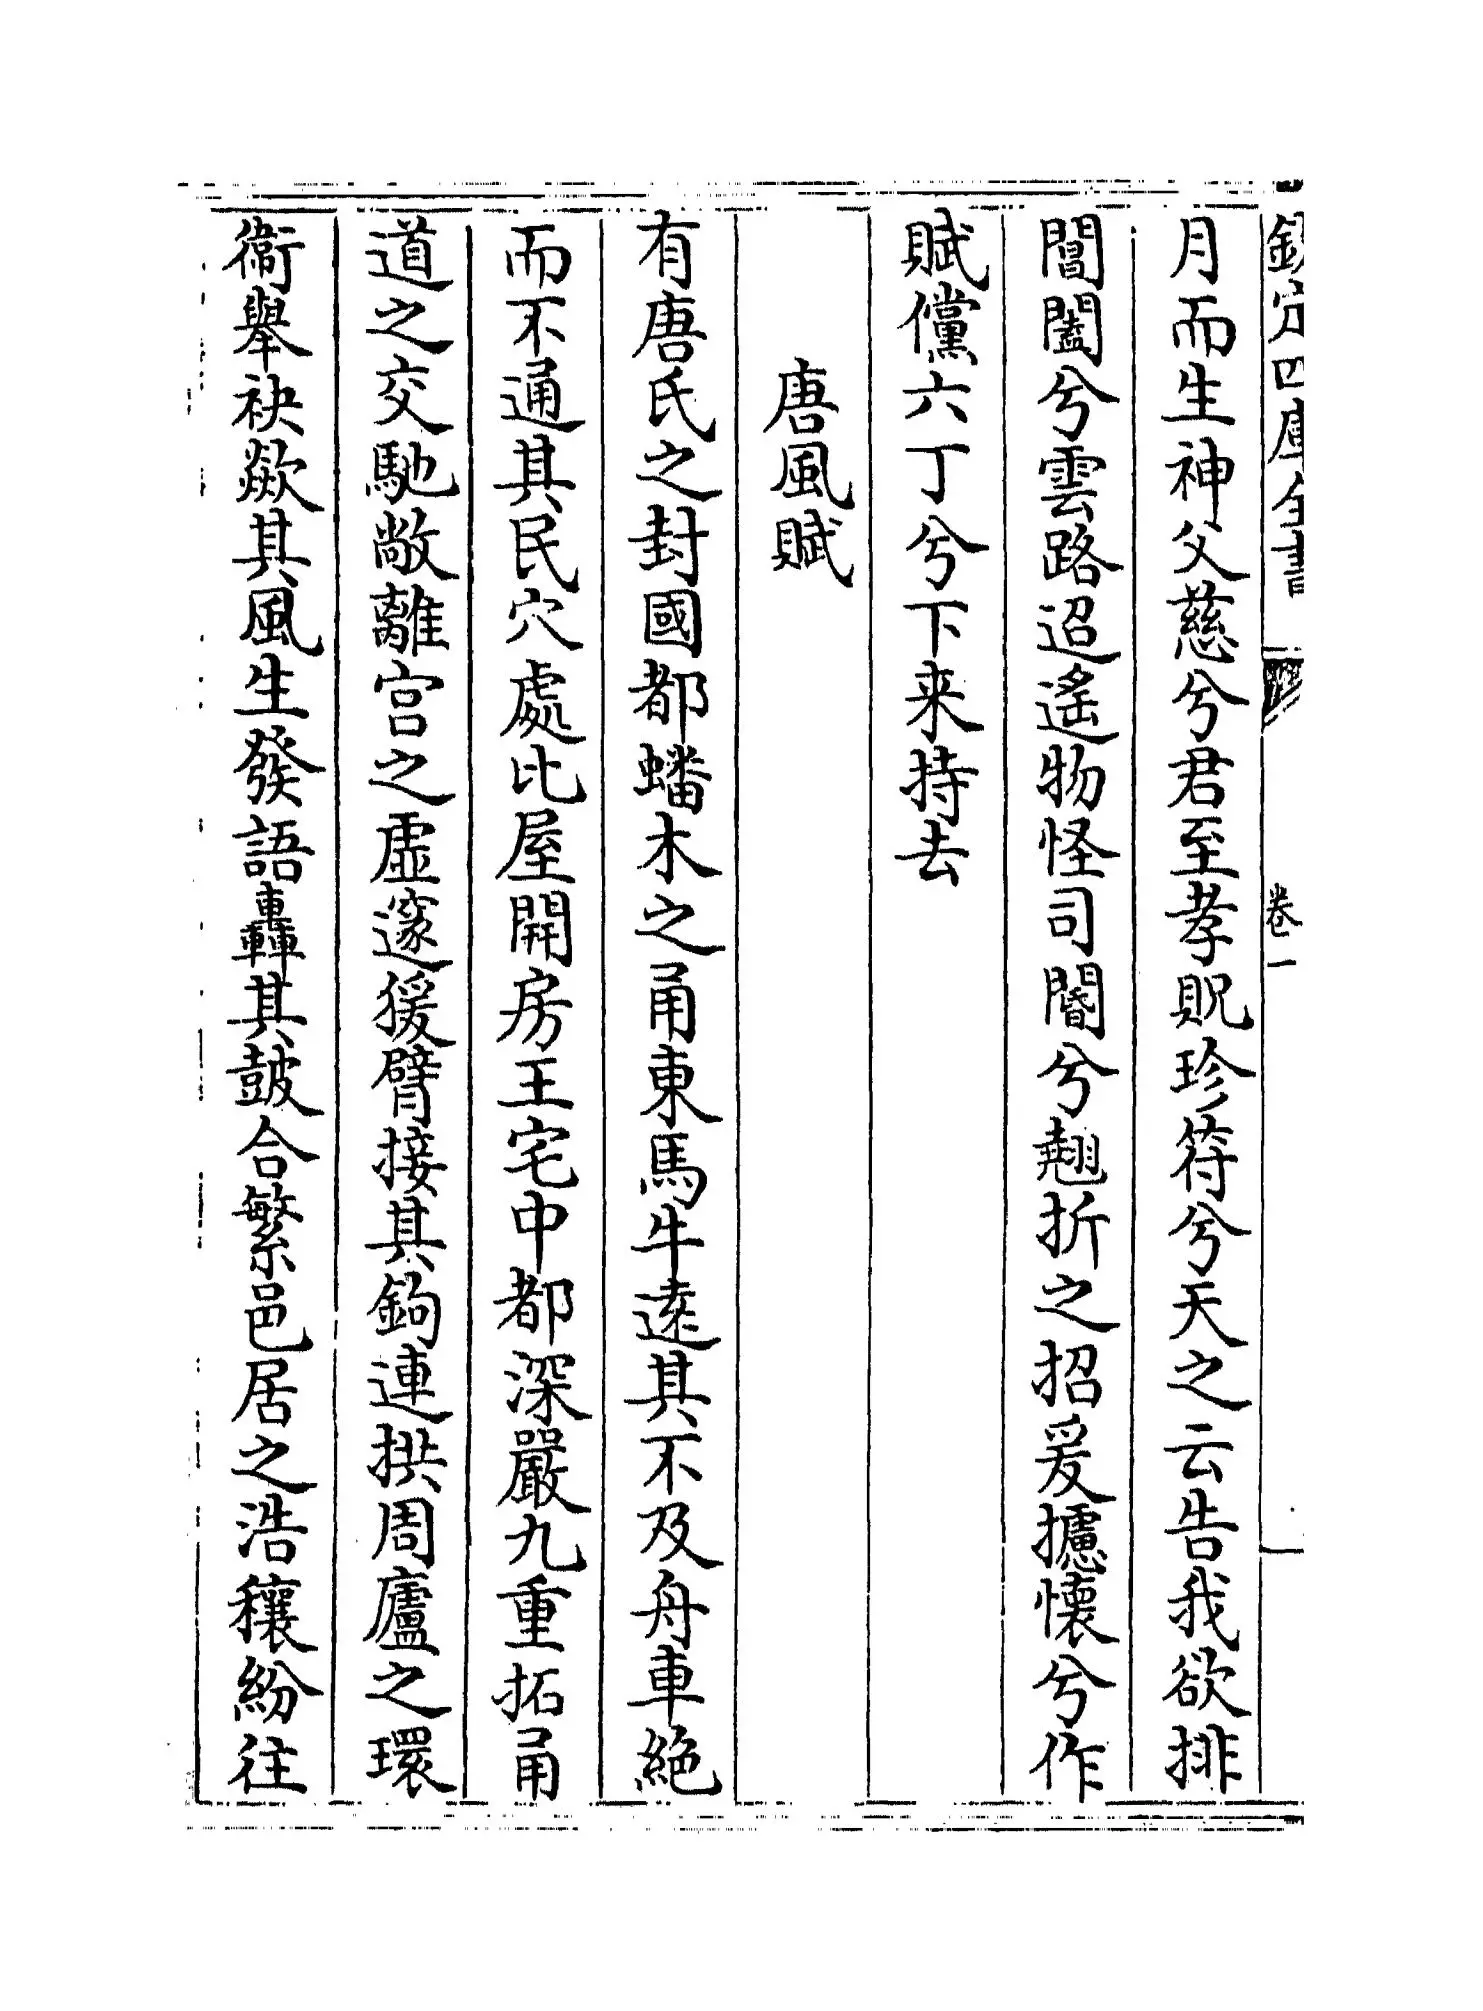 欽定四庫全書 卷一
月而生神父慈兮君至孝貺珍符兮天之云告我欲排
閶闔兮雲路迢遙物怪司閽兮翹折之招爰攄懷兮作
賦儻六丁兮下来持去
唐風賦
有唐氏之封國都蟠木之甬東馬牛逺其不及舟車絶
而不通其民穴處比屋開房王宅中都深嚴九重拓甬
道之交馳敞離宫之虚邃猨臂接其鉤連拱周廬之環
衞舉袂歘其風生發語轟其鼓合繁邑居之浩穰紛往